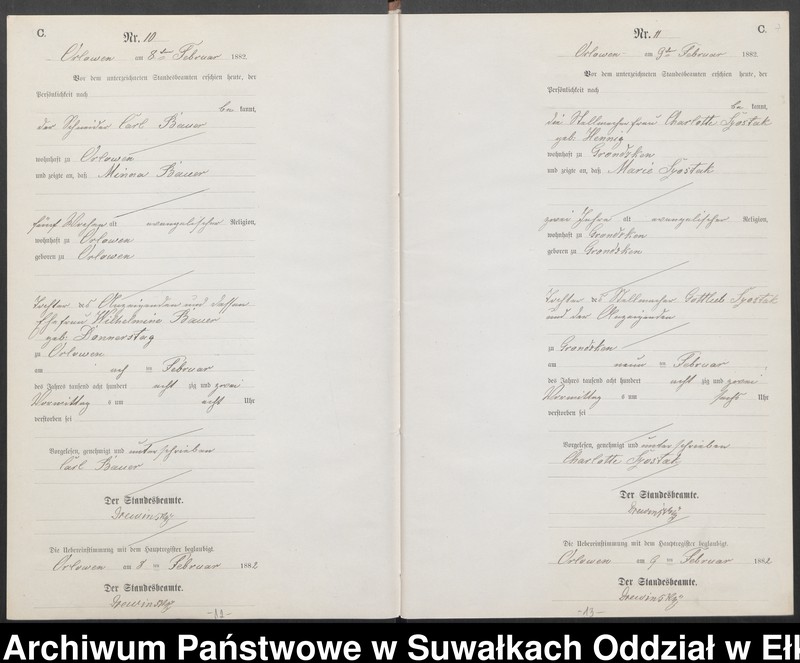 C.
Nr. 10
Orlowen am 8ten Februar 1882
Vor dem unterzeichneten Standesbeamten erschien heute, der
Persönlichkeit nach
be kannt,
der Schneider Carl Bauer
wohnhaft zu Orlowen
und zeigte an, daß Minna Bauer
fünf Wochen alt evangelischer Religion,
wohnhaft zu Orlowen
geboren zu Orlowen
Tochter des Anzeigenden und dessen
Ehefrau Wilhelmine Bauer
geb. Donnerstag
zu Orlowen
am acht ten Februar
des Jahres tausend acht hundert acht zig und zwei
Vormittag s um acht Uhr
verstorben sei
Vorgelesen, genehmigt und unterschrieben
Carl Bauer
Der Standesbeamte.
Die Uebereinstimmung mit dem Hauptregister beglaubigt.
Orlowen am 8 ten Februar 1882
Der Standesbeamte.
C.
Nr. 11
Orlowen am 9ten Februar 1882
Vor dem unterzeichneten Standesbeamten erschien heute, der
Persönlichkeit nach
be kannt,
die Stellmacherfrau Charlotte
geb. Hennig
wohnhaft zu Grondzken
und zeigte an, daß Marie
zwei Jahre alt evangelischer Religion,
wohnhaft zu Grondzken
geboren zu Grondzken
Tochter des Stellmacher Gottlieb
und der Anzeigenden
zu Grondzken
am neun ten Februar
des Jahres tausend acht hundert acht zig und zwei
Vormittag s um sechs Uhr
verstorben sei
Vorgelesen, genehmigt und unterschrieben
Charlotte
Der Standesbeamte.
Die Uebereinstimmung mit dem Hauptregister beglaubigt.
Orlowen am 9 ten Februar 1882
Der Standesbeamte.
-13-
Archiwum Państwowe w Suwałkach Oddział w Ełk